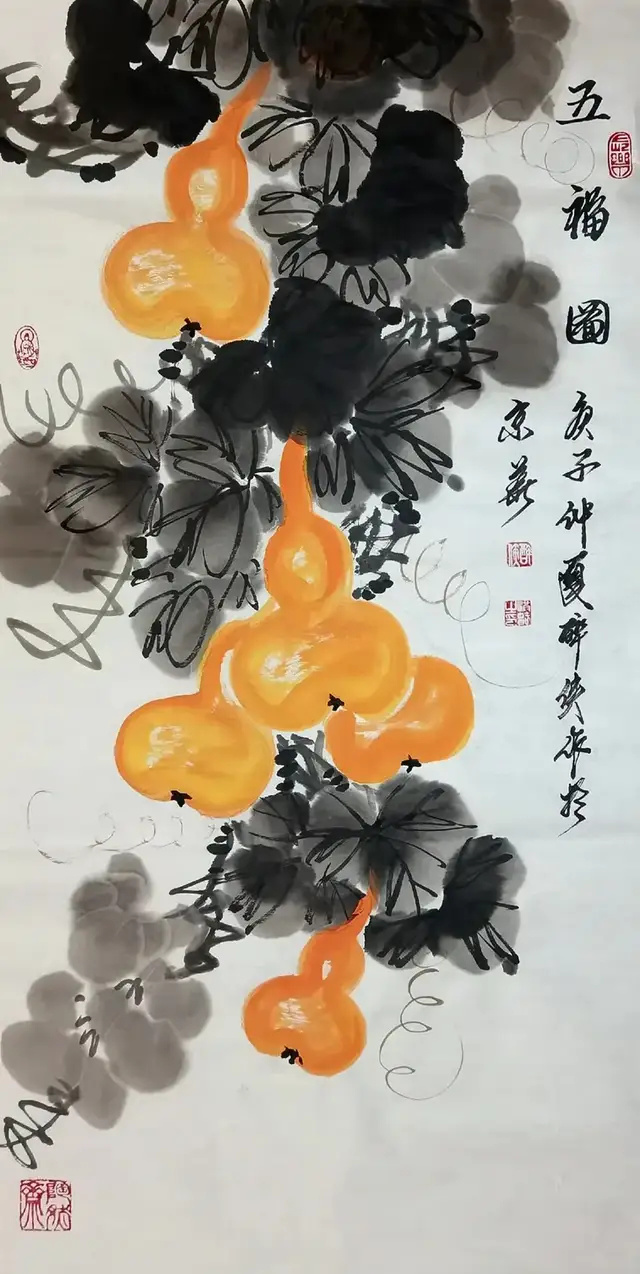 五福圖
庚子仲夏醉侠作於
京華